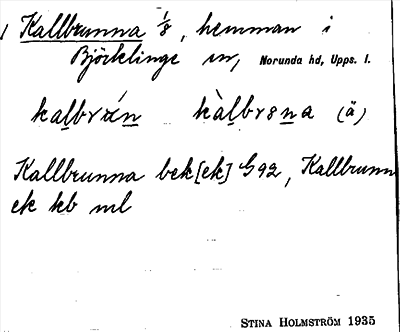 Kallbrunna 1/8, hemman i
Björklinge sn, Norunda hd, Upps. l.
kalbrǘn kàlbrөna (ä)
Kallbrunna bek [ek] G92, Kallbrunn
ek kb ml
STINA HOLMSTRÖM 1935